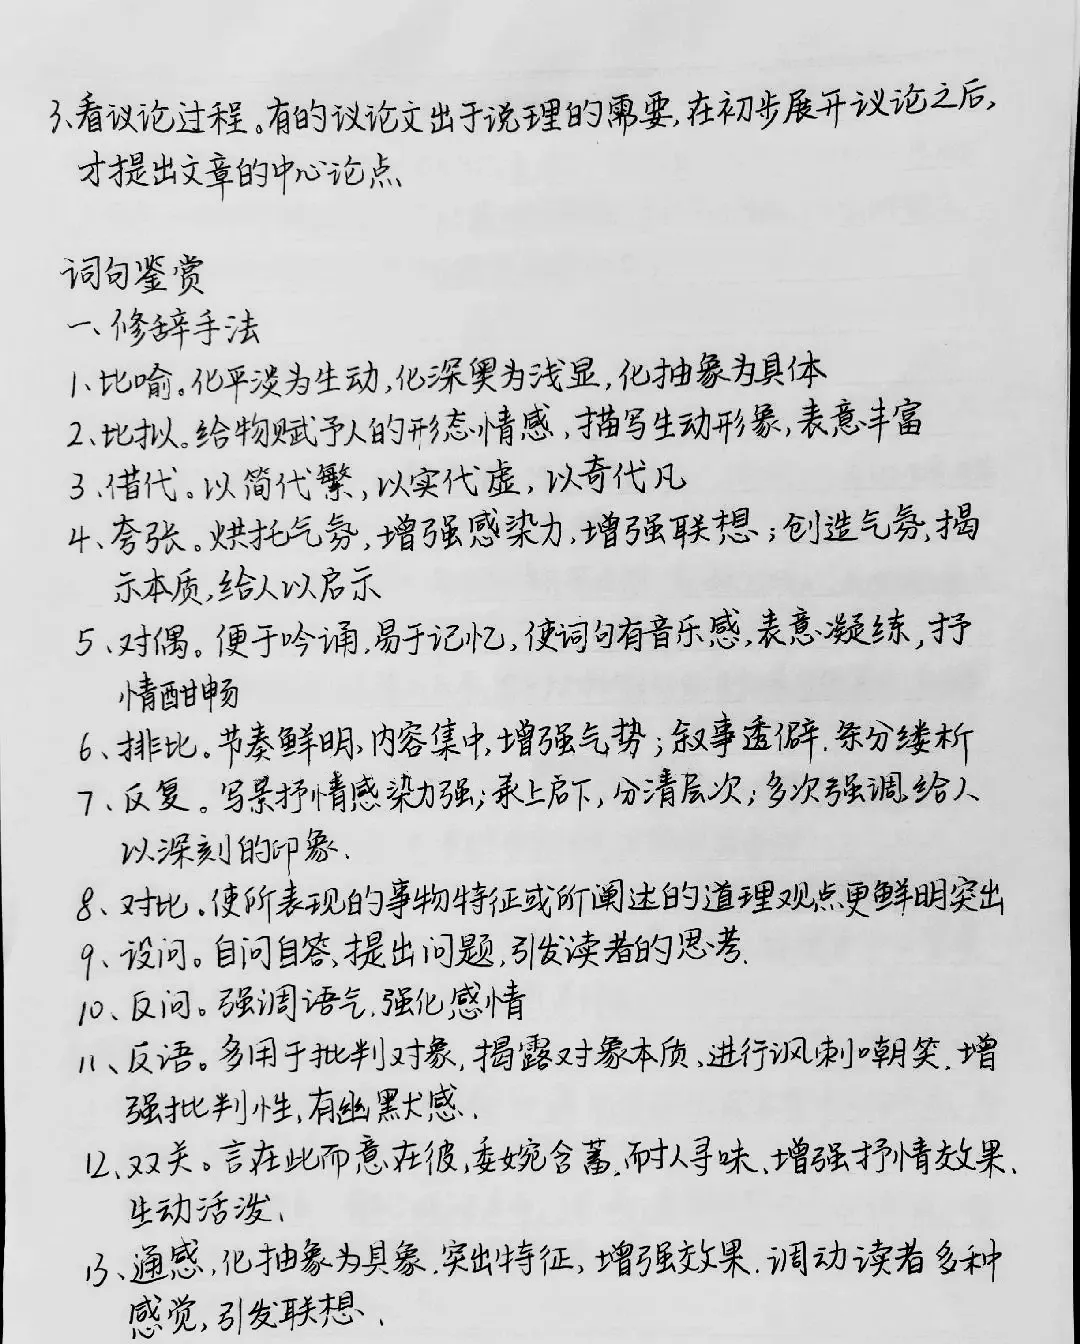 3、看议论过程。有的议论文出于说理的需要,在初步展开议论之后,
才提出文章的中心论点、
词句鉴赏
一、修辞手法
1、比喻。化平淡为生动,化深奥为浅显,化抽象为具体
2、比拟。给物赋予人的形态情感,描写生动形象,表意丰富
3、借代。以简代繁,以实代虚,以奇代凡
4、夸张。烘托气氛,增强感染力,增强联想;创造气氛,揭
示本质,给人以启示
5、对偶。便于吟诵,易于记忆,使词句有音乐感,表意凝练,抒
情酣畅
6、排比。节奏鲜明、内容集中,增强气势;叙事透僻、条分缕析
7、反复。写景抒情感染力强;承上启下,分清层次;多次强调,给人
以深刻的印象、
8、对比。使所表现的事物特征或所阐述的道理观点更鲜明突出
9、设问。自问自答、提出问题,引发读者的思考、
10、反问。强调语气,强化感情
11、反语。多用于批判对象,揭露对象本质、进行讽刺嘲笑、增
强批判性,有幽默感、
12、双关。言在此而意在彼,委婉含蓄,耐人寻味、增强抒情效果、
生动活泼、
13、通感,化抽象为具象、突出特征,增强效果、调动读者多种
感觉,引发联想、